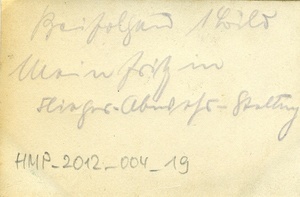 Beifolgend 1 Bild
Mein Fritz in
Flieger-Abwehr-Stellung
HMP_2012_004_19